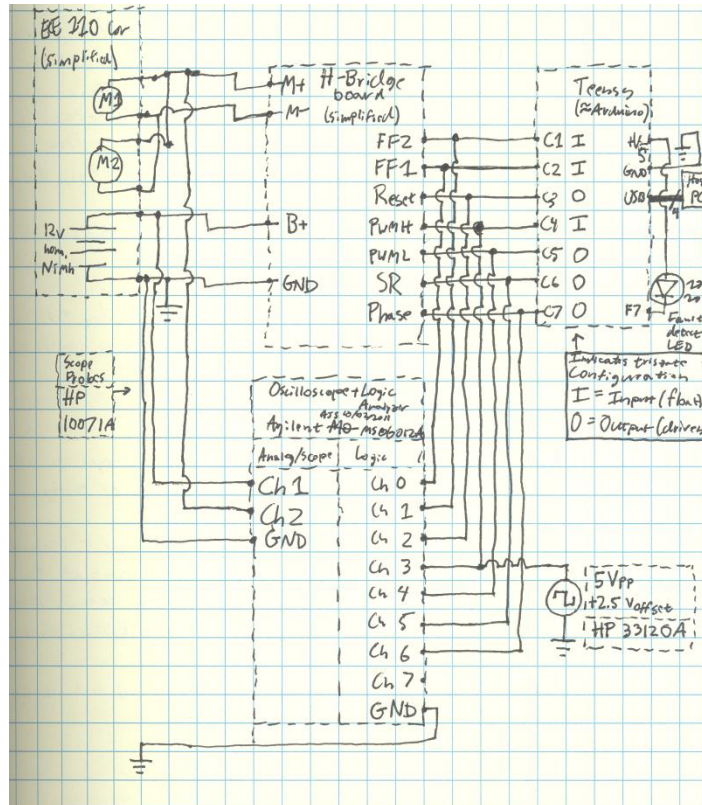 EE 210 Car
(simplified)
M1
M2
12V
nom.
NiMh
H-Bridge
board
(simplified)
M+
M-
B+
GND
FF2
FF1
Reset
PWMH
PWML
SR
Phase
Teensy
(≈Arduino)
C1 I
C2 I
C3 O
C4 I
C5 O
C6 O
C7 O
5
GND
USB
4
PC
F7
Fault
detect
LED
Indicates tristate
Configuration
I = Input (float
O = Output (driven
Scope
Probes
HP
10071A
Oscilloscope + Logic
Analyzer
Agilent MSO6012A
Analog/scope
Logic
Ch 1
Ch 2
GND
Ch 0
Ch 1
Ch 2
Ch 3
Ch 4
Ch 5
Ch 6
Ch 7
GND
5 Vpp
+2.5 Voffset
HP 33120A